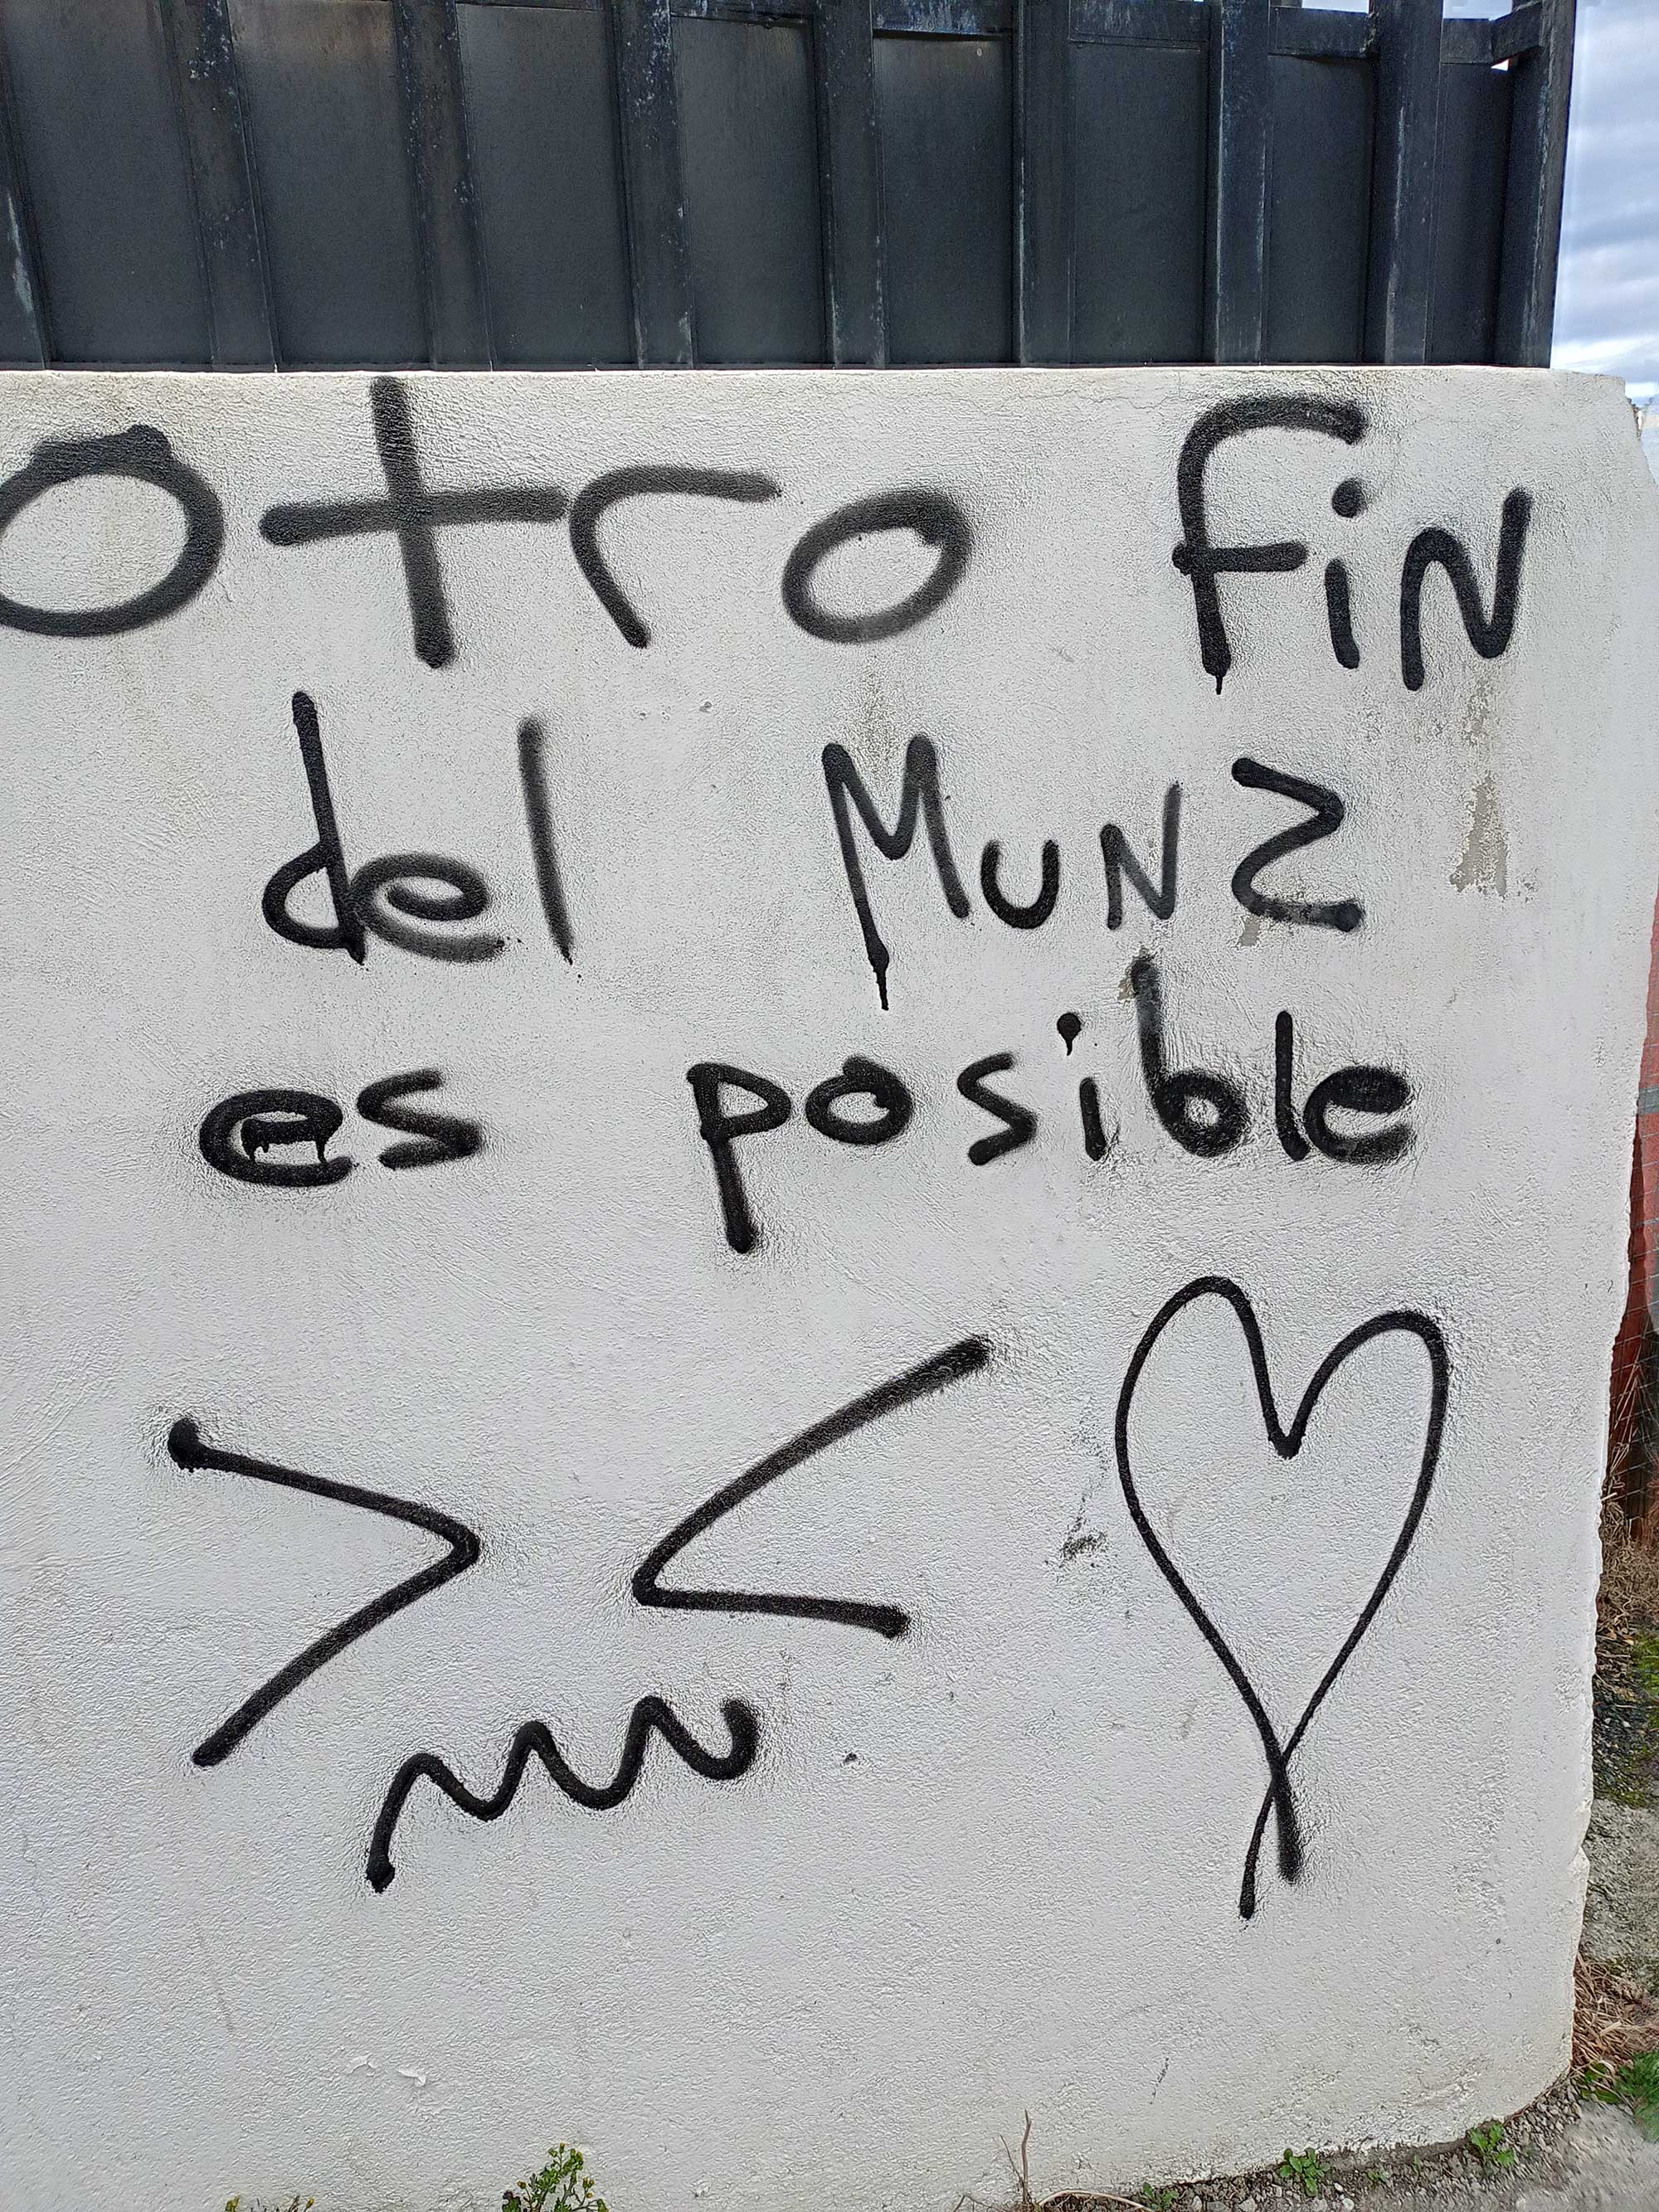 otro fin
del MUNZ
es posible